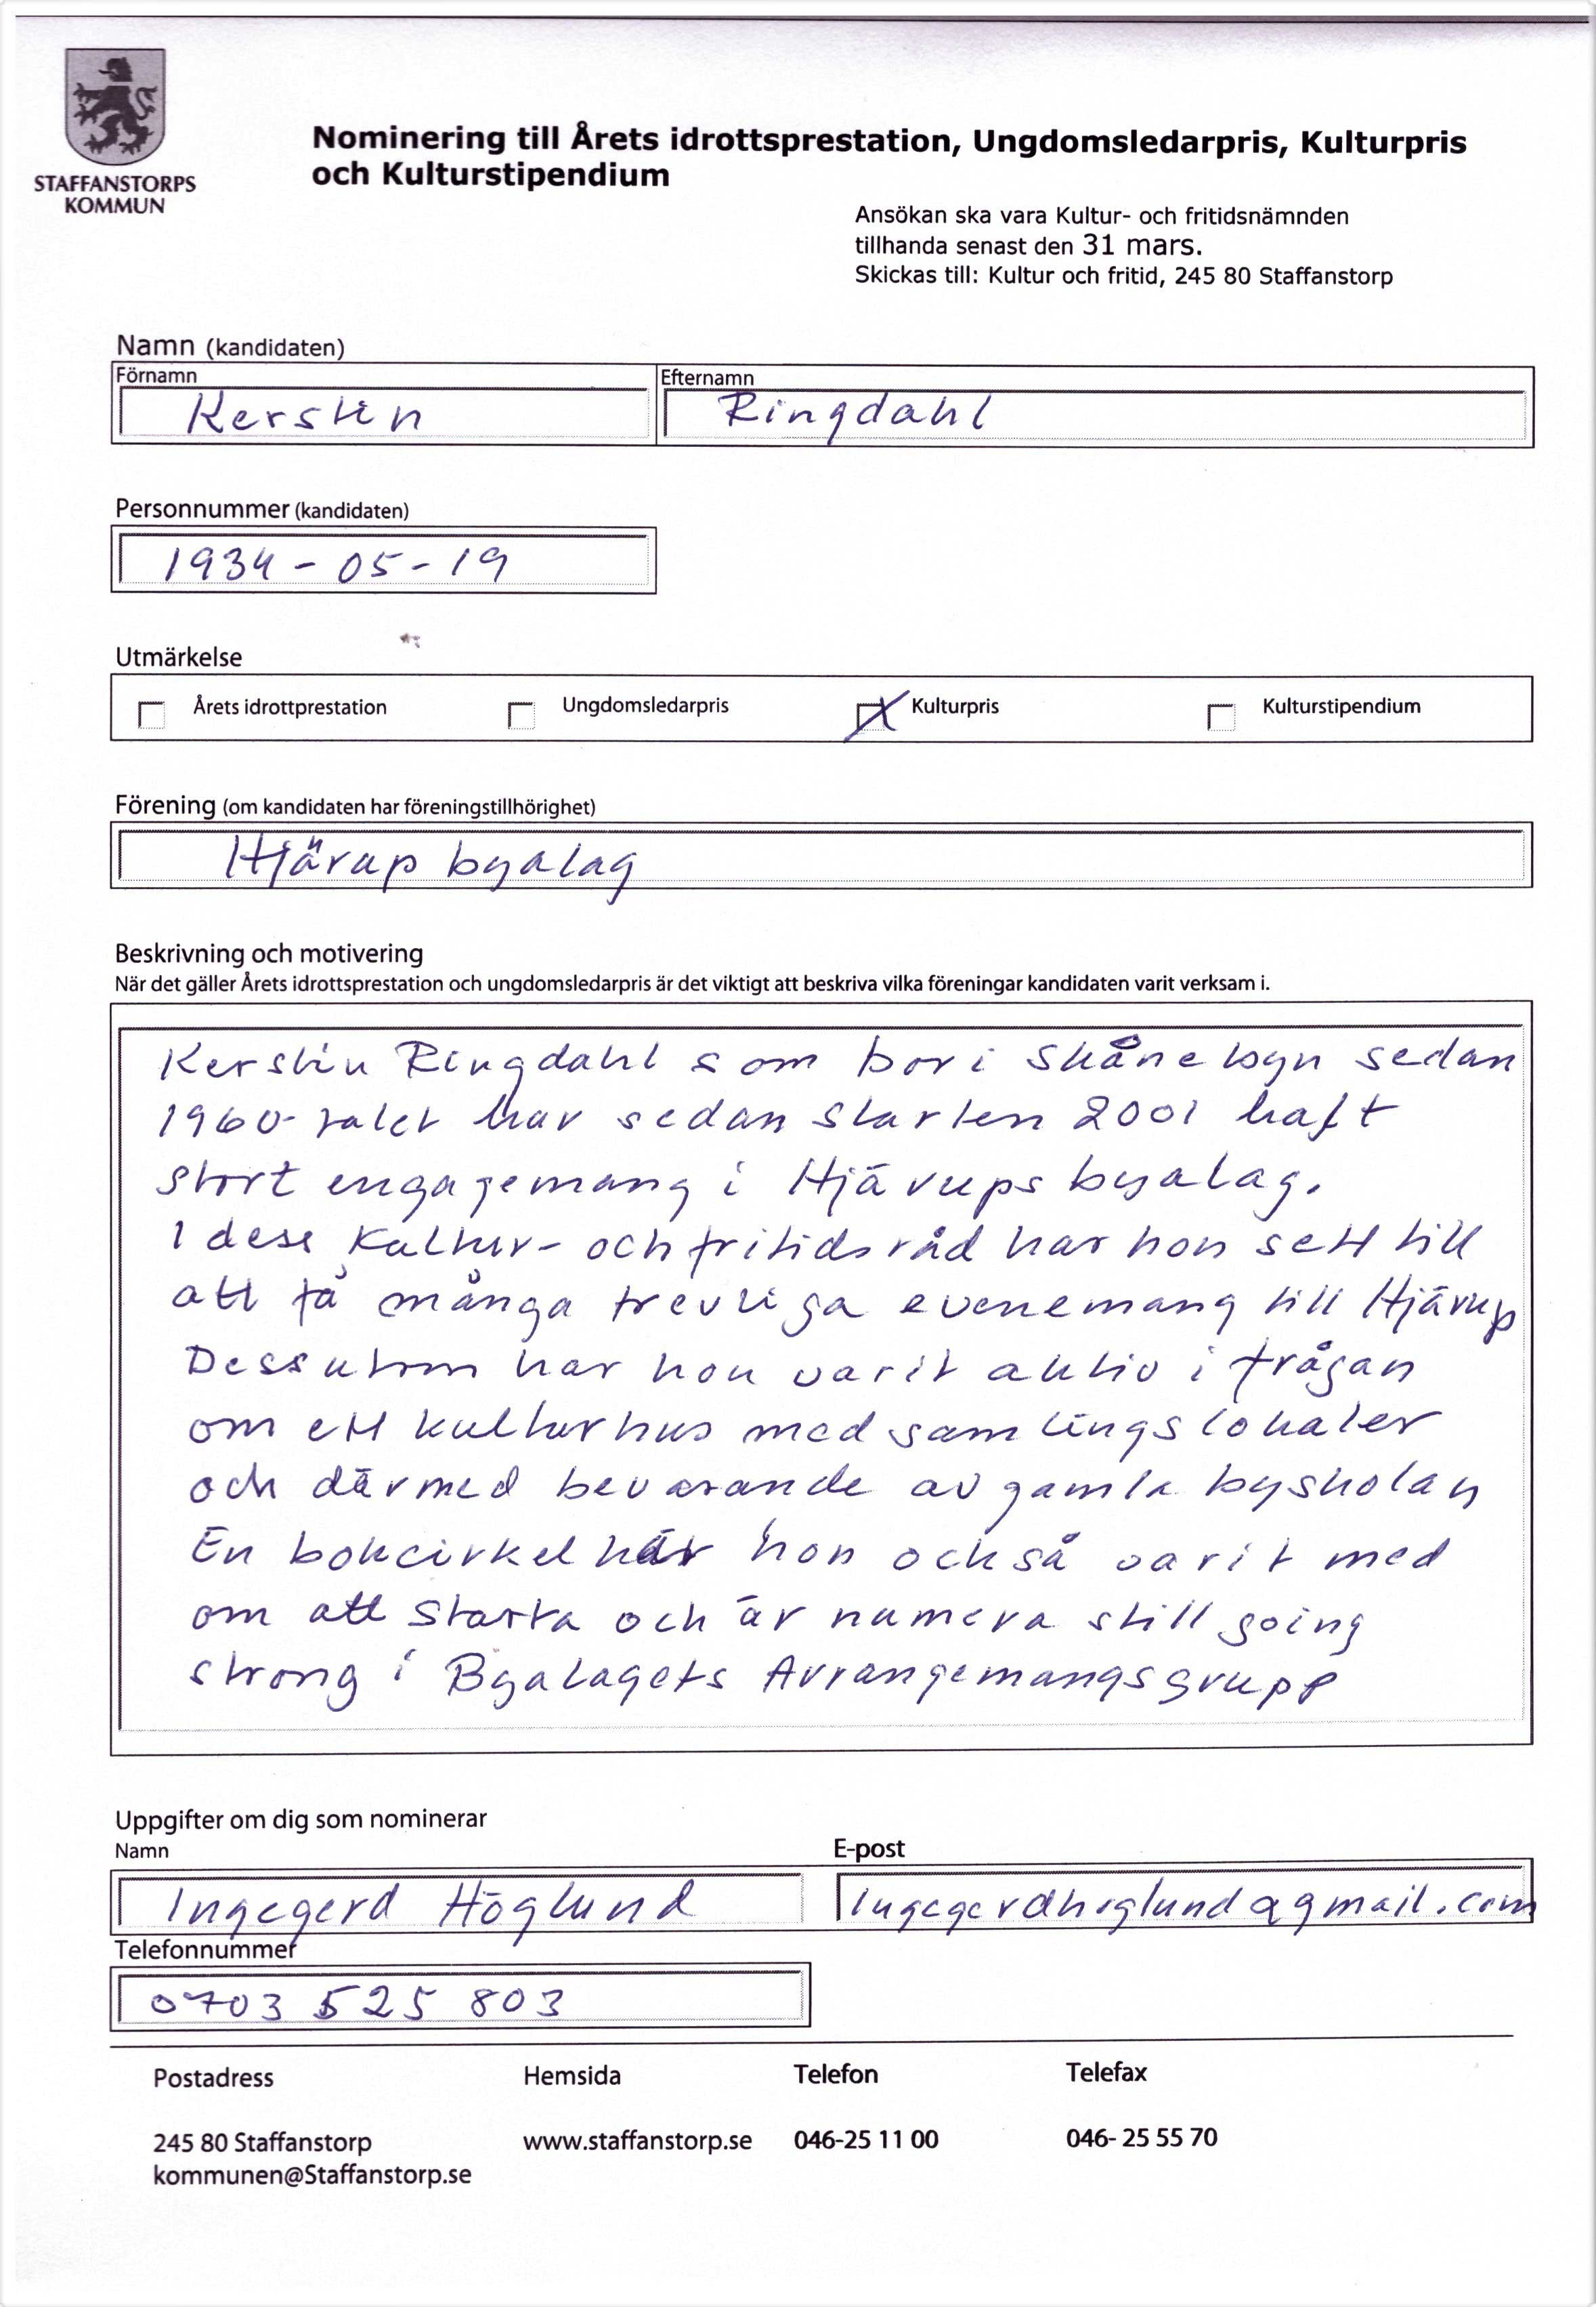 STAFFANSTORPS
KOMMUN
Nominering till Årets idrottsprestation, Ungdomsledarpris, Kulturpris
och Kulturstipendium
Ansökan ska vara Kultur- och fritidsnämnden
tillhanda senast den 31 mars.
Skickas till: Kultur och fritid, 245 80 Staffanstorp
Namn (kandidaten)
Förnamn
Efternamn
Kerstin
Ringdahl
Personnummer (kandidaten)
1934-05-19
Utmärkelse
Årets idrottprestation
Ungdomsledarpris
Kulturpris
Kulturstipendium
Förening (om kandidaten har föreningstillhörighet)
Hjärup byalag
Beskrivning och motivering
När det gäller Årets idrottsprestation och ungdomsledarpris är det viktigt att beskriva vilka föreningar kandidaten varit verksam i.
Kerstin Ringdahl som bor i Skånebyn sedan
1960-talet har sedan starten 2001 haft
stort engagemang i Hjärups byalag.
I dess Kultur- och fritidsråd har hon sett till
att få många trevliga evenemang till Hjärup
Dessutom har hon varit aktiv i frågan
om ett kulturhus med samlingslokaler
och därmed bevarande av gamla byskolan
En bokcirkel har hon också varit med
om att starta och är numera still going
strong i Byalagets Arrangemangsgrupp
Uppgifter om dig som nominerar
Namn
E-post
Ingegerd Höglund
Ingegerdhoglund@gmail.com
Telefonnummer
0703 525 803
Postadress
Hemsida
Telefon
Telefax
245 80 Staffanstorp
www.staffanstorp.se
046-25 11 00
046- 25 55 70
kommunen@Staffanstorp.se